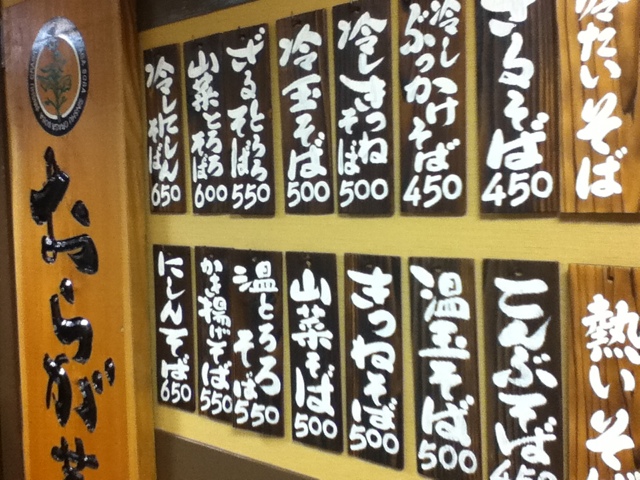 冷たいそば
ざるそば 450
冷しぶっかけそば 450
冷しきつねそば 500
冷玉そば 500
ざるとろろそば 550
山菜とろろそば 600
冷しにしんそば 650
熱いそば
こんぶそば 450
温玉そば 500
きつねそば 500
山菜そば 500
温とろろそば 550
かき揚げそば 550
にしんそば 650
おらが